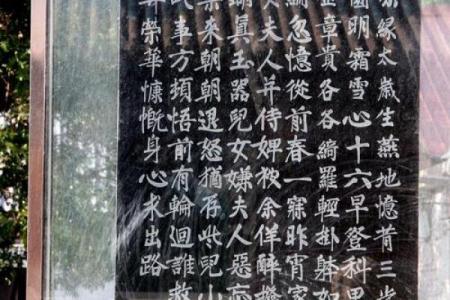 緣太歲生燕地憶昔三
國明霜雪心十六早登科
金章貴各各綺羅輕掛躰
忽憶從前春一寐昨宵家
夫人并侍婢被余佯醉撥
瑚真玉器兒女嫌夫人惡
來朝朝退怒猶存些兒小
事方頓悟前有輪迴誰救
榮華慷慨身心求出路